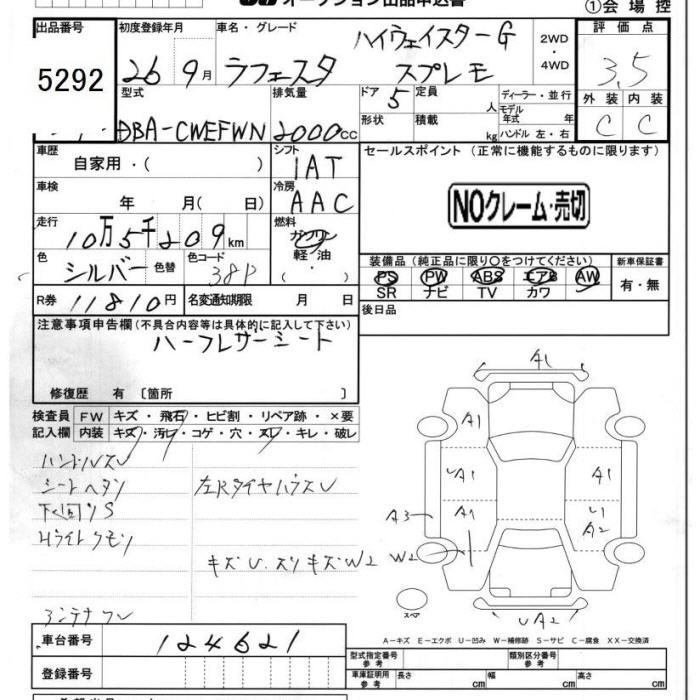 オークション出品申込書
①会場控
出品番号
5292
初度登録年月
26 9月
車名・グレード
ハイウェイスターG
ラフェスタ スプレモ
2WD
・
4WD
評価点
3.5
外装 内装
C C
型式
DBA-CWEFWN
排気量
2000cc
ドア 5
形状
定員 人
積載 kg
ディーラー・並行
モデル
年式 年
ハンドル 左・右
車歴
自家用・( )
シフト
IAT
車検
年 月( 日)
冷房
AAC
走行
10万5千209km
燃料
ガソリン
軽・油
( ・ )
色
シルバー 色替
色コード
38P
R券 11810円
名変通知期限 月 日
セールスポイント (正常に機能するものに限ります)
NOクレーム・売切
装備品(純正品に限り〇をつけてください)
PS PW ABS エアB AW
SR ナビ TV カワ
新車保証書
有・無
後日品
注意事項申告欄(不具合内容等は具体的に記入して下さい)
ハーフレザーシート
修復歴 有〔箇所 〕
検査員 FW キズ・飛石・ヒビ割・リペア跡・×要
記入欄 内装 キズ・汚レ・コゲ・穴・スレ・キレ・破レ
ハンドルスレ
シートヘタリ
下回リS
Hライトクモリ
左RタイヤハウスU
キズU.スリキズW2
アンテナワレ
A1
A1
UA1
A1
A1
A3
A1
U1
A2
W2
UA2
スペア
A-キズ E-エクボ U-凹み W-補修跡 S-サビ C-腐食 XX-交換済
車台番号
124621
登録番号
型式指定番号
参考
類別区分番号
参考
車庫証明用
参考
長さ cm 幅 cm 高さ cm